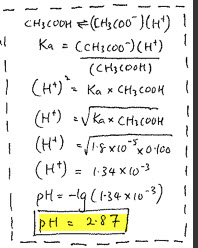 CH₃COOH ⇌ (CH₃COO⁻)(H⁺)
Ka = (CH₃COO⁻)(H⁺)
(CH₃COOH)
(H⁺)² = Ka × CH₃COOH
(H⁺) = √Ka × CH₃COOH
(H⁺) = √1.8 × 10⁻⁵ × 0.100
(H⁺) = 1.34 × 10⁻³
pH = -lg (1.34 × 10⁻³)
pH = 2.87